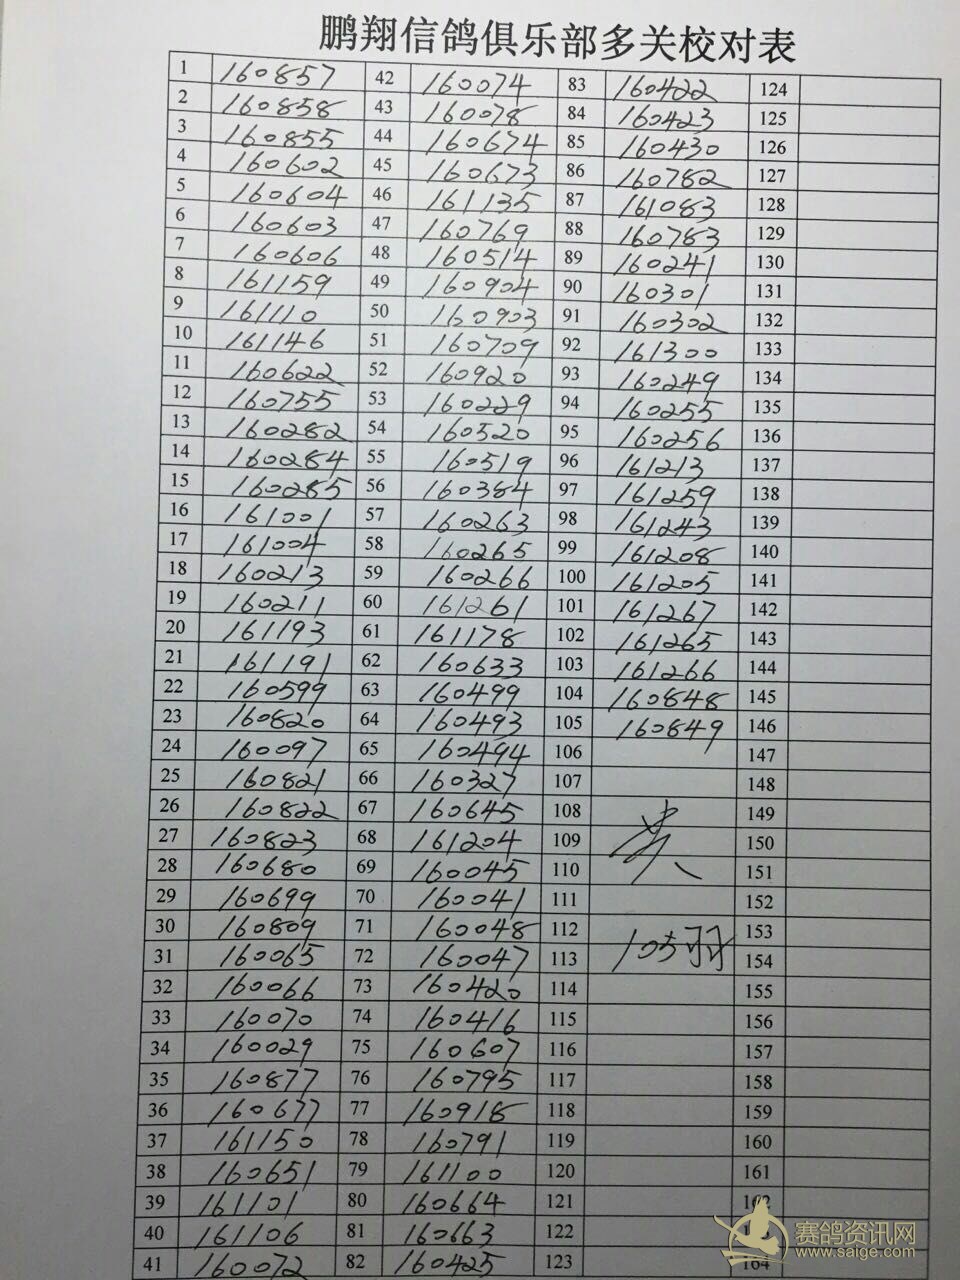 鹏翔信鸽俱乐部多关校对表
1 160857 42 160074 83 160422 124
2 160858 43 160078 84 160423 125
3 160855 44 160674 85 160430 126
4 160602 45 160673 86 160782 127
5 160604 46 161135 87 161083 128
6 160603 47 160769 88 160783 129
7 160606 48 160514 89 160241 130
8 161159 49 160904 90 160301 131
9 161110 50 160903 91 160302 132
10 161146 51 160709 92 161300 133
11 160622 52 160920 93 160249 134
12 160755 53 160229 94 160255 135
13 160282 54 160520 95 160256 136
14 160284 55 160519 96 161213 137
15 160285 56 160384 97 161259 138
16 161001 57 160263 98 161243 139
17 161004 58 160265 99 161208 140
18 160213 59 160266 100 161205 141
19 160211 60 161261 101 161267 142
20 161193 61 161178 102 161265 143
21 161191 62 160633 103 161266 144
22 160599 63 160499 104 160848 145
23 160820 64 160493 105 160849 146
24 160097 65 160494 106 147
25 160821 66 160327 107 148
26 160822 67 160645 108 149
27 160823 68 161204 109 共 150
28 160680 69 160045 110 151
29 160699 70 160041 111 152
30 160809 71 160048 112 153
31 160065 72 160047 113 105羽 154
32 160066 73 160420 114 155
33 160070 74 160416 115 156
34 160029 75 160607 116 157
35 160877 76 160795 117 158
36 160677 77 160918 118 159
37 161150 78 160791 119 160
38 160651 79 161100 120 161
39 161101 80 160664 121 162
40 161106 81 160663 122
41 160072 82 160425 123 164
赛鸽资讯网
www.saige.com